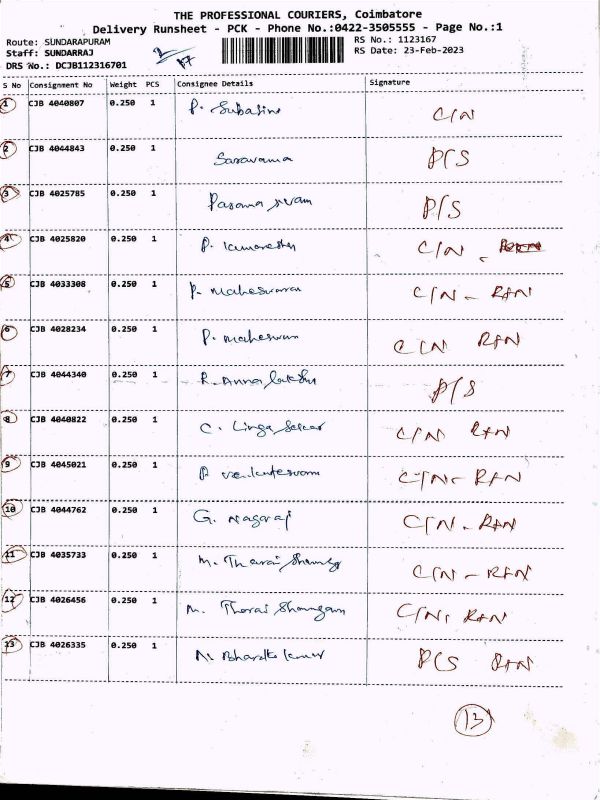 THE PROFESSIONAL COURIERS, Coimbatore
Delivery Runsheet - PCK - Phone No.:0422-3505555 - Page No.:1
Route: SUNDARAPURAM
RS No.: 1123167
Staff: SUNDARRAJ
RS Date: 23-Feb-2023
DRS No.: DCJB112316701
S No Consignment No Weight PCS Consignee Details Signature
1 CJB 4040807 0.250 1 P. Subasini C/N
2 CJB 4044843 0.250 1 Saravana P/S
3 CJB 4025785 0.250 1 P/S
4 CJB 4025820 0.250 1 P. C/N
5 CJB 4033308 0.250 1 P. C/N - RTN
6 CJB 4028234 0.250 1 P. C/N RTN
7 CJB 4044340 0.250 1 R. Anna P/S
8 CJB 4040822 0.250 1 C. Linga C/N RTN
9 CJB 4045021 0.250 1 P C/N - RTN
10 CJB 4044762 0.250 1 G. Nagaraj C/N - RTN
11 CJB 4035733 0.250 1 M. C/N - RTN
12 CJB 4026456 0.250 1 M. C/N RTN
13 CJB 4026335 0.250 1 P/S RTN
13